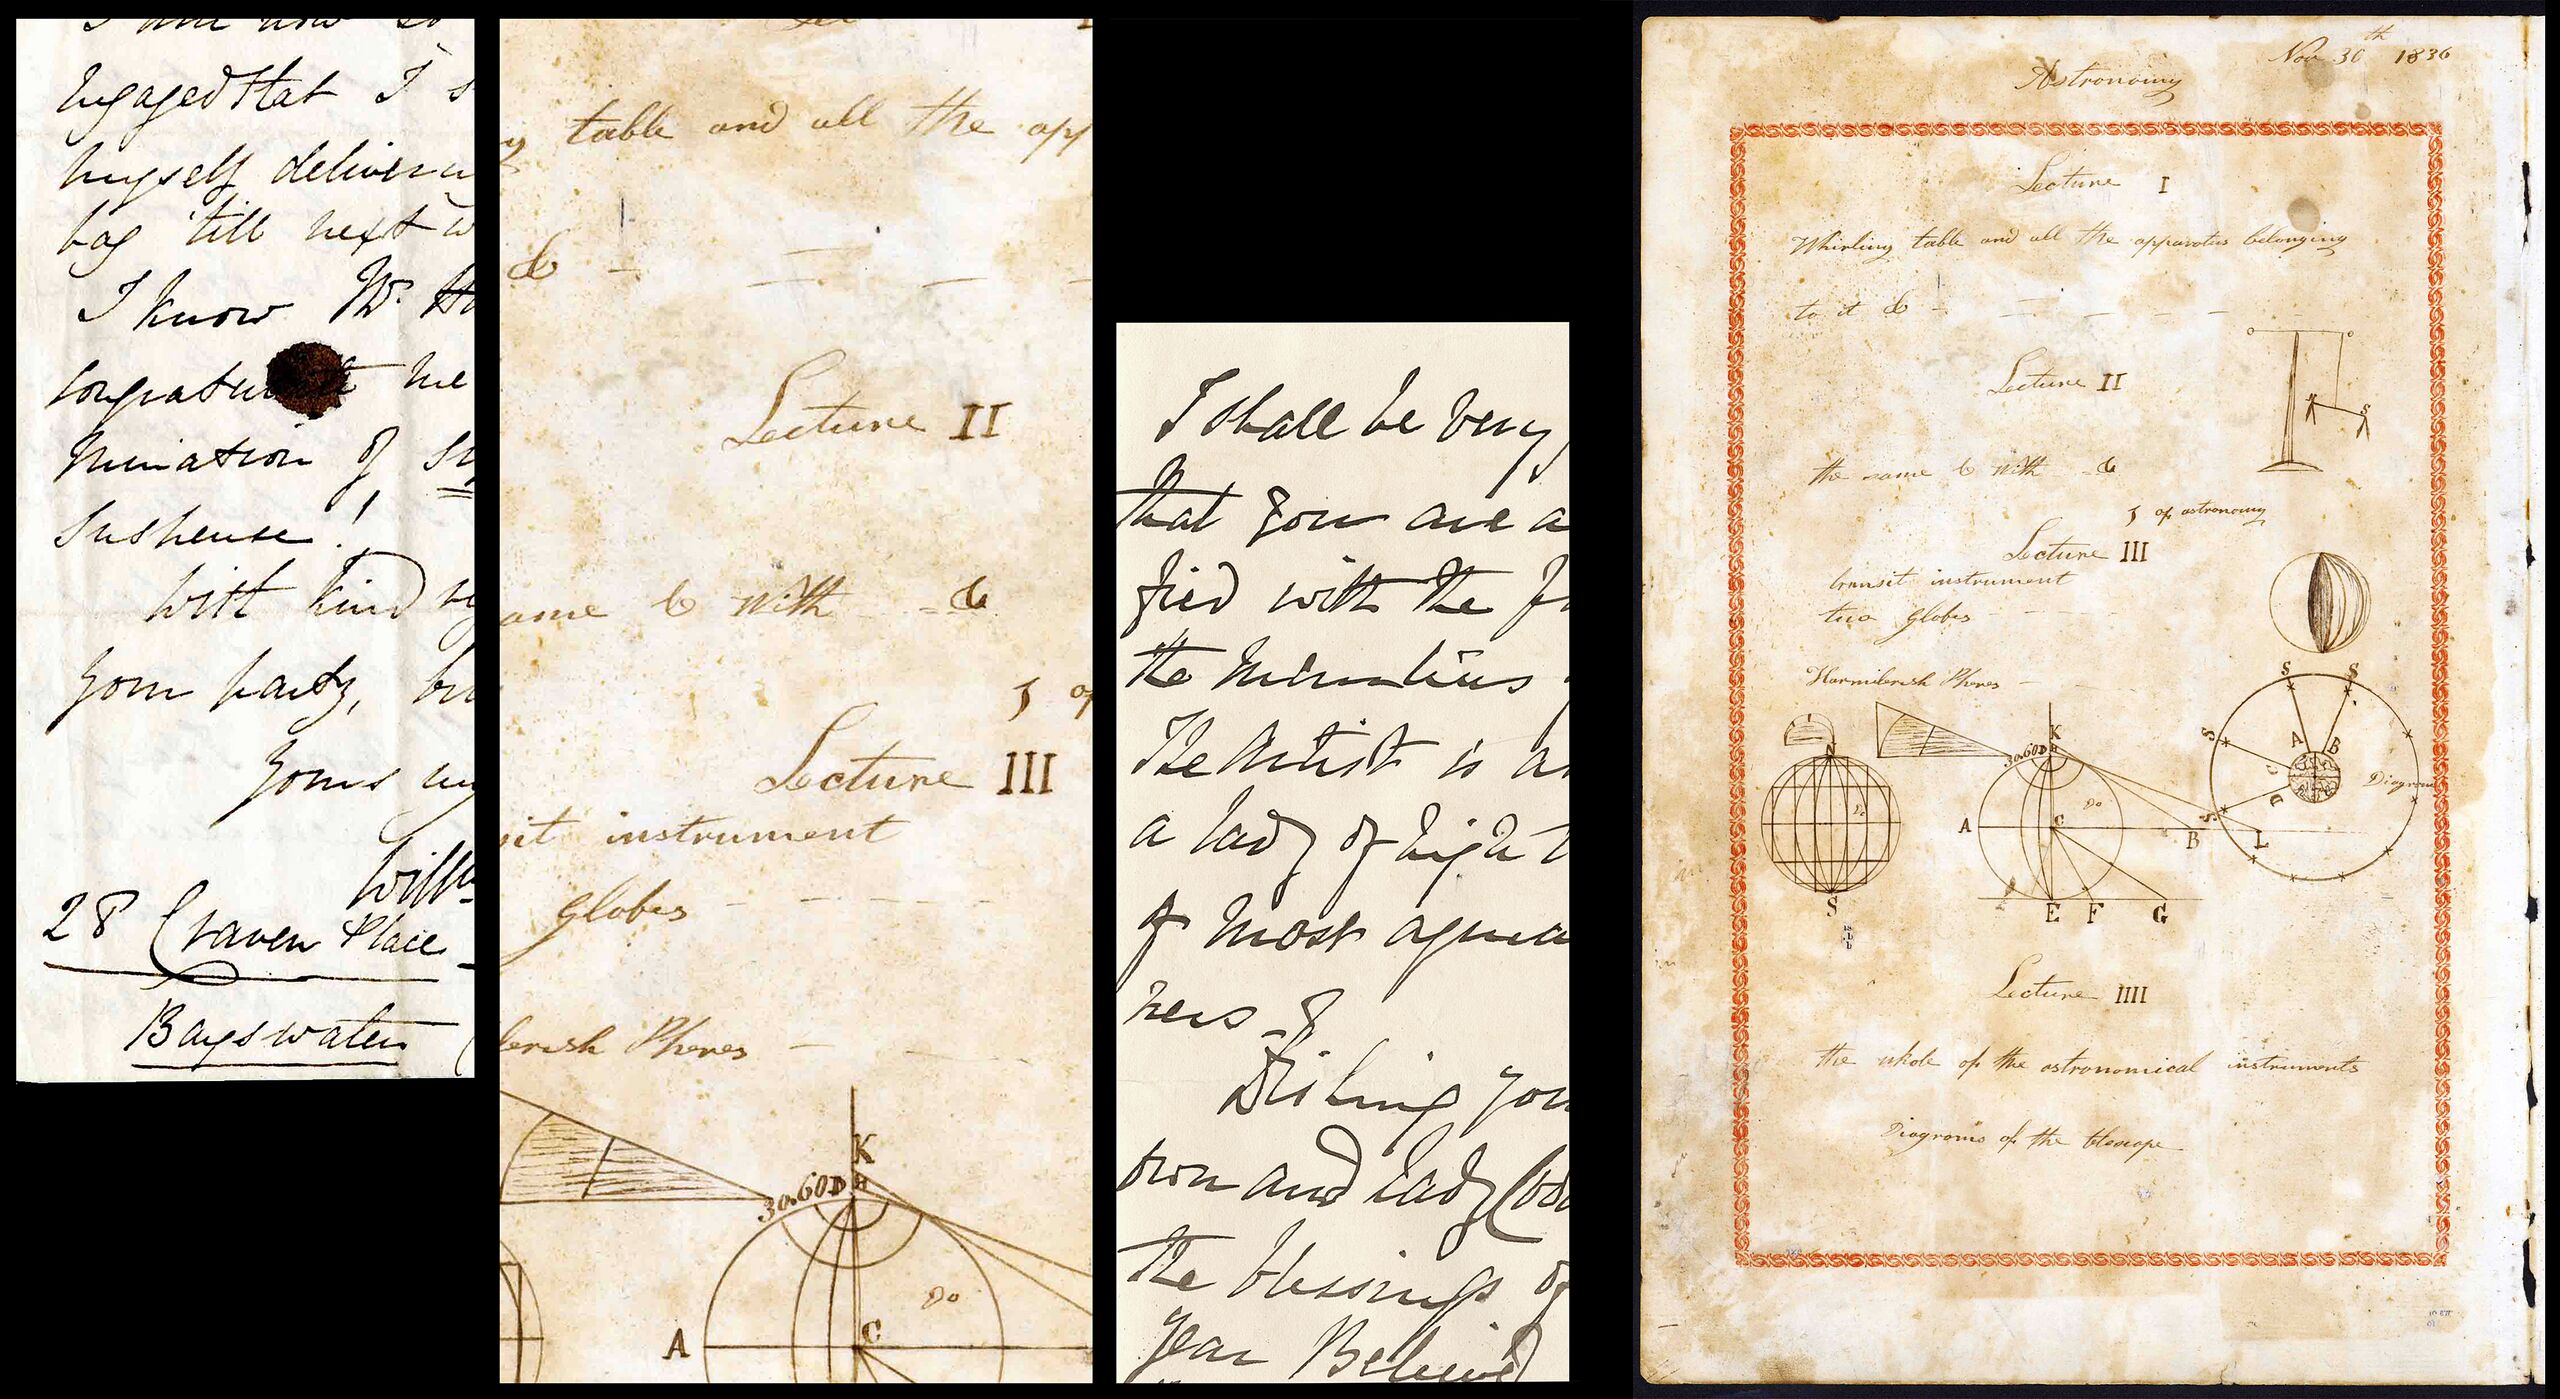 I am now so
Engaged that I s
myself deliver
bag 'till next w
I know Mr.
me
mination of
suspense!
With kind
your party,
Yours
Willm
28 Craven Place
Bayswater
table and all the app
&
Lecture II
ame & with &
of
Lecture III
sit instrument
globes
erish Pheres
K
30.60D H
Do
A
C
I shall be very
that you are a
fied with the
the
The Artist is
a lady of high
of most agreea
ners &
Wishing you
own and Lady
the blessings of
year Believe
Nov 30th 1836
Astronomy
Lecture I
Whirling table and all the apparatus belonging
to it &
Lecture II
the same & with &
of astronomy
Lecture III
transit instrument
two globes
Harmilerish Pheres
S S
S
K
30.60D H
A B
N
C
D
Diagram
Do
A C B L
S
S
E F G
Lecture IIII
the whole of the astronomical instruments
Diagrams of the telescope